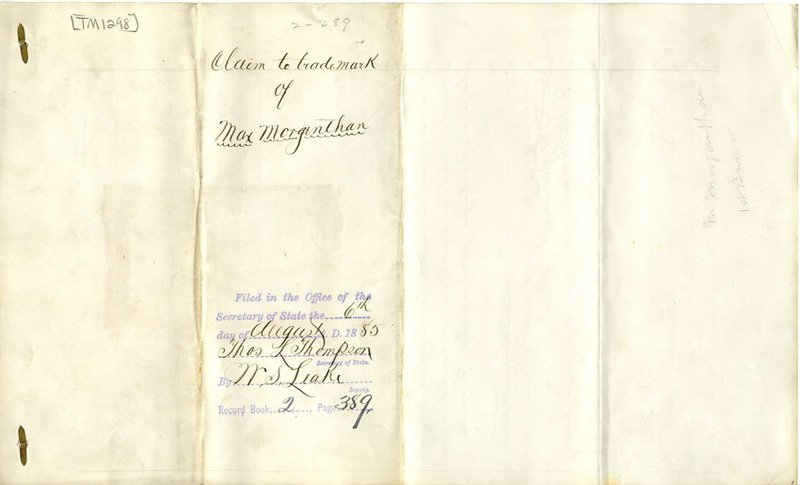 [TM1298]
2-289
Claim to trademark
of
Max Morgenthan
Filed in the Office of the
Secretary of State the 6th
day of August A. D. 1885
Thos L Thompson
Secretary of State.
By W. S. Leake
Deputy.
Record Book, 2, Page 389,